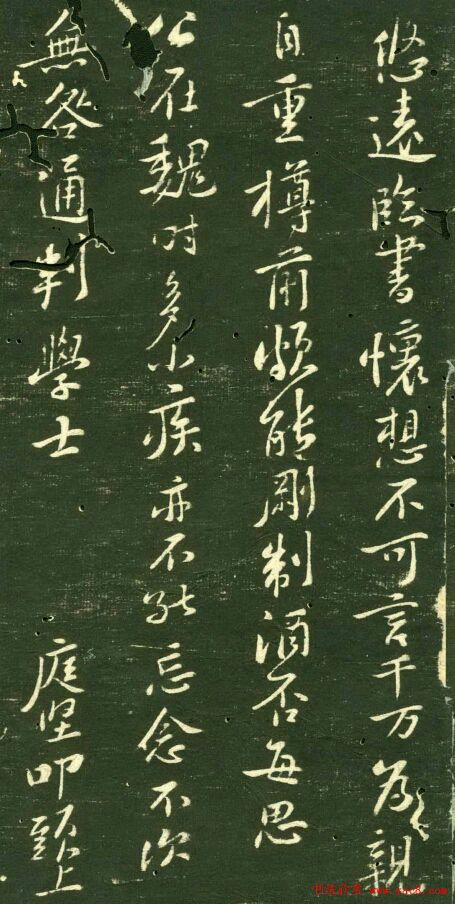 悠遠臨書懷想不可言千万為親
自重樽前頗能剛制酒否每思
公在魏時多小疾亦不能忘念不次
無咎通判學士 庭坚叩頭上
书法欣赏 www.yac8.com